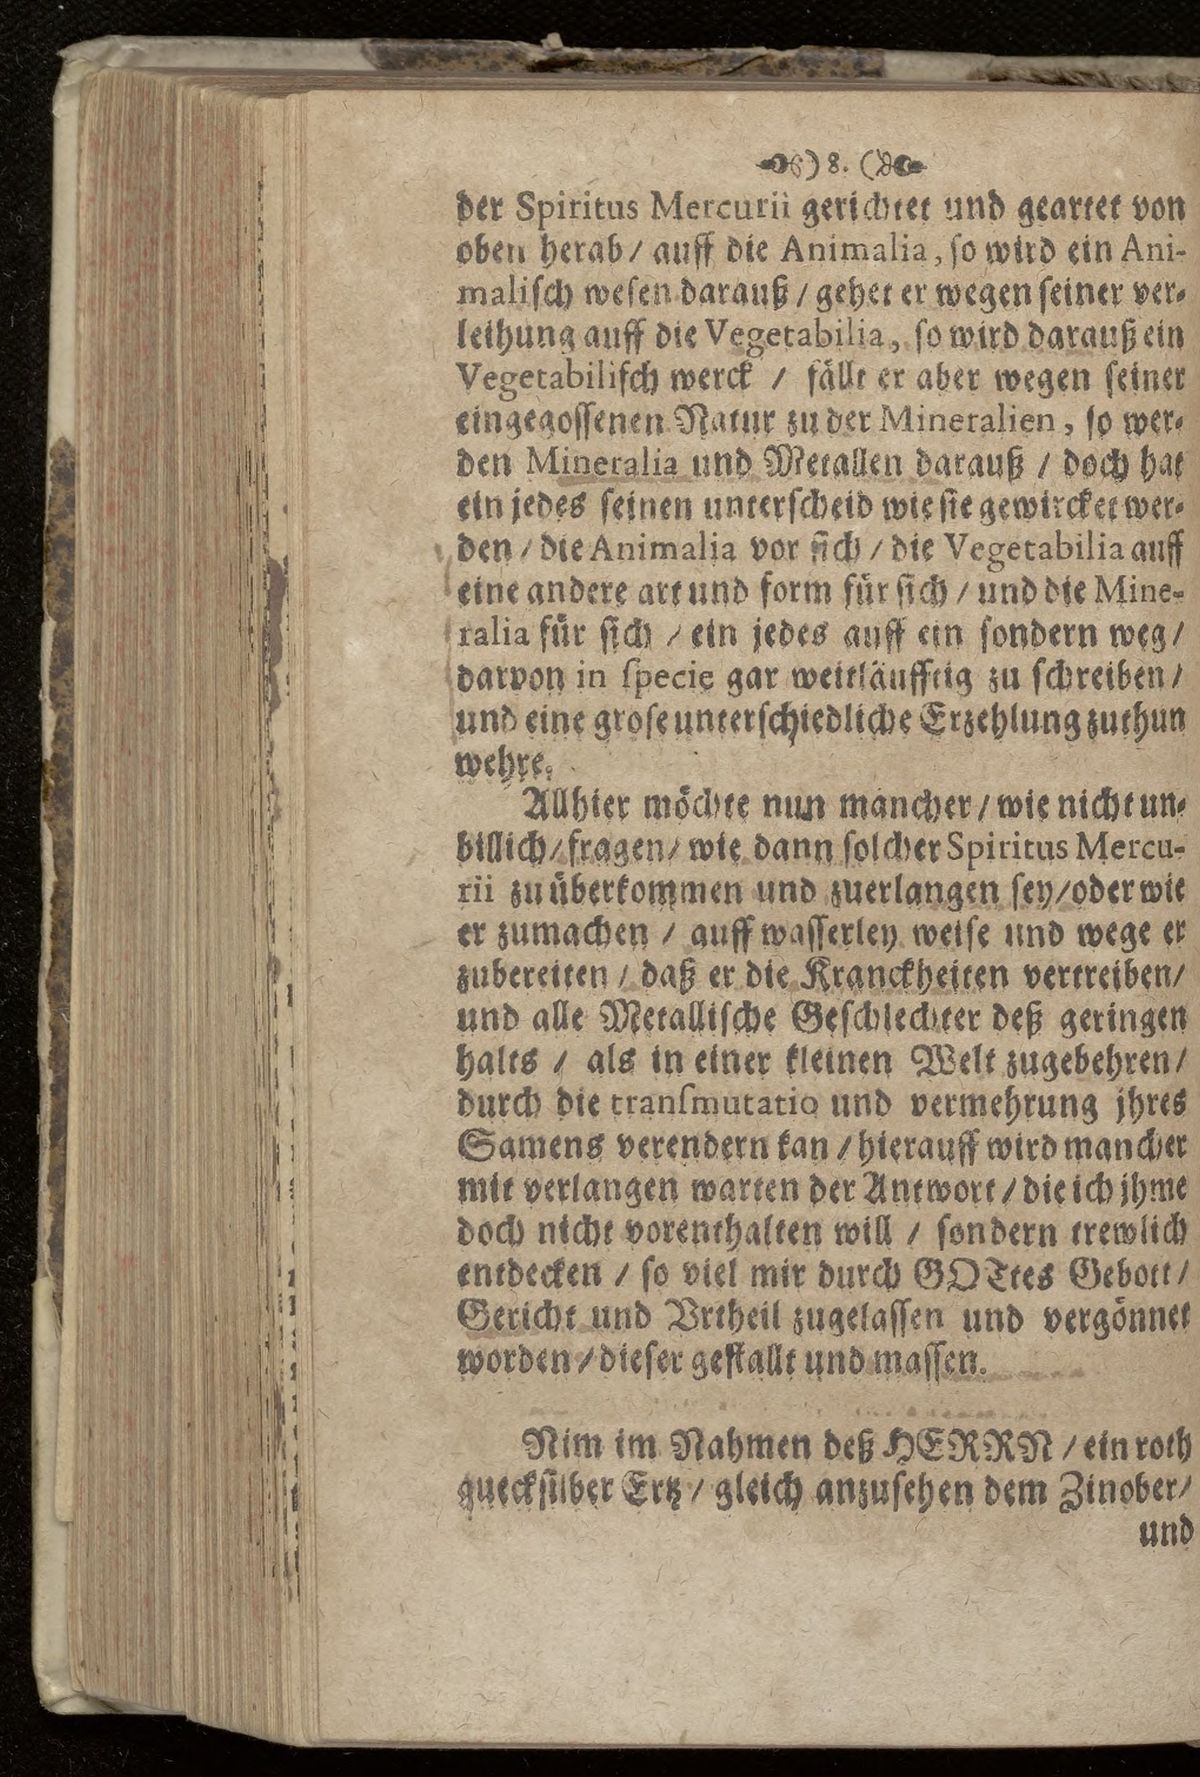 ) 8. (
der Spiritus Mercurii gerichtet und geartet von
oben herab / auff die Animalia, so wird ein Ani-
malisch wesen darauß / gehet er wegen seiner ver-
leihung auff die Vegetabilia, so wird darauß ein
Vegetabilisch werck / fällt er aber wegen seiner
eingegossenen Natur zu der Mineralien, so wer-
den Mineralia und Metallen darauß / doch hat
ein jedes seinen unterscheid wie sie gewircket wer-
den / die Animalia vor sich / die Vegetabilia auff
eine andere art und form für sich / und die Mine-
ralia für sich / ein jedes auff ein sondern weg /
darvon in specie gar weitläufftig zu schreiben /
und eine grose unterschiedliche Erzehlung zuthun
wehre.
Allhier möchte nun mancher / wie nicht un-
billich / fragen / wie dann solcher Spiritus Mercu-
rii zu überkommen und zuerlangen sey / oder wie
er zumachen / auff wasserley weise und wege er
zubereiten / daß er die Kranckheiten vertreiben /
und alle Metallische Geschlechter deß geringen
halts / als in einer kleinen Welt zugebehren /
durch die transmutatio und vermehrung jhres
Samens verendern kan / hierauff wird mancher
mit verlangen warten der Antwort / die ich jhme
doch nicht vorenthalten will / sondern trewlich
entdecken / so viel mir durch GOTtes Gebott /
Gericht und Vrtheil zugelassen und vergönnet
worden / dieser gestallt und massen.
Nim im Nahmen deß HERRN / ein roth
quecksilber Ertz / gleich anzusehen dem Zinober /
und